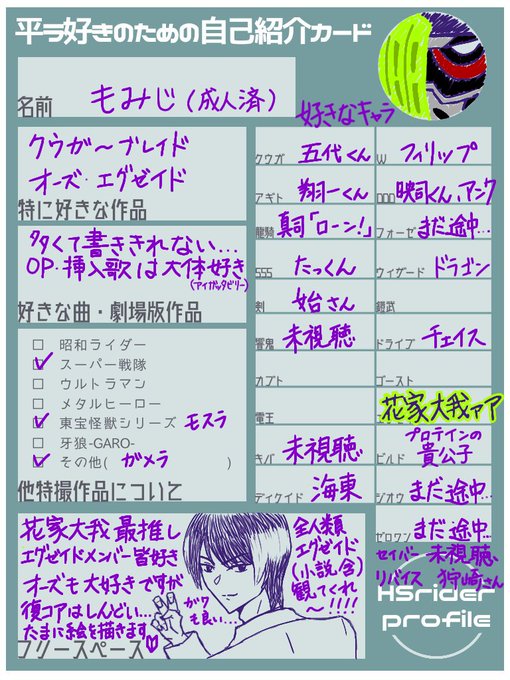 平ラ好きのための自己紹介カード
名前 もみじ(成人済)
クウガ〜ブレイド
オーズ・エグゼイド
特に好きな作品
多くて書ききれない…
OP・挿入歌は大体好き
(アイガッタビリー)
好きな曲・劇場版作品
昭和ライダー
スーパー戦隊
ウルトラマン
メタルヒーロー
東宝怪獣シリーズ モスラ
牙狼-GARO-
その他( ガメラ )
他特撮作品について
好きなキャラ
クウガ 五代くん
アギト 翔一くん
龍騎 真司「ローン!」
555 たっくん
剣 始さん
響鬼 未視聴
カブト
電王
キバ 未視聴
ディケイド 海東
W フィリップ
OOO 映司くん、アンク
フォーゼ まだ途中…
ウィザード ドラゴン
鎧武
ドライブ チェイス
ゴースト
花家大我ァア
ビルド プロテインの
貴公子
ジオウ まだ途中…
ゼロワン まだ途中…
セイバー 未視聴、
リバイス 狩崎さん
花家大我 最推し
エグゼイドメンバー皆好き
オーズも大好きですが
復コアはしんどい…
たまに絵を描きます
ガワ
も良い…
全人類
エグゼイド
(小説含)
観てくれ
〜!!!!
フリースペース
HSrider
profile